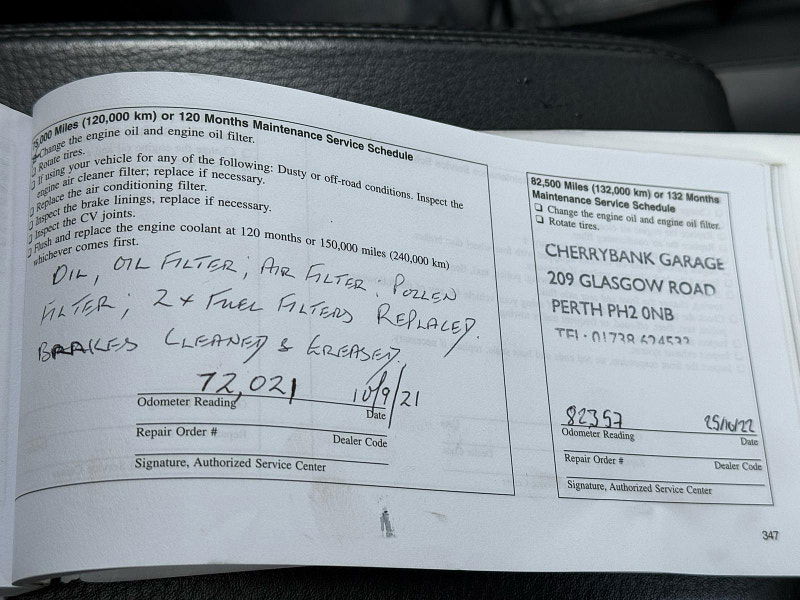 75,000 Miles (120,000 km) or 120 Months Maintenance Service Schedule
Change the engine oil and engine oil filter.
Rotate tires.
If using your vehicle for any of the following: Dusty or off-road conditions. Inspect the
engine air cleaner filter; replace if necessary.
Replace the air conditioning filter.
Inspect the brake linings, replace if necessary.
Inspect the CV joints.
Flush and replace the engine coolant at 120 months or 150,000 miles (240,000 km)
whichever comes first.
OIL, OIL FILTER; AIR FILTER. POLLEN
FILTER; 2 x FUEL FILTERS REPLACED.
BRAKES CLEANED & GREASED.
72,021 10/9/21
Odometer Reading Date
Repair Order # Dealer Code
Signature, Authorized Service Center
82,500 Miles (132,000 km) or 132 Months
Maintenance Service Schedule
Change the engine oil and engine oil filter.
Rotate tires.
CHERRYBANK GARAGE
209 GLASGOW ROAD
PERTH PH2 0NB
TEL: 01738 624532
82357 25/10/22
Odometer Reading Date
Repair Order # Dealer Code
Signature, Authorized Service Center
347